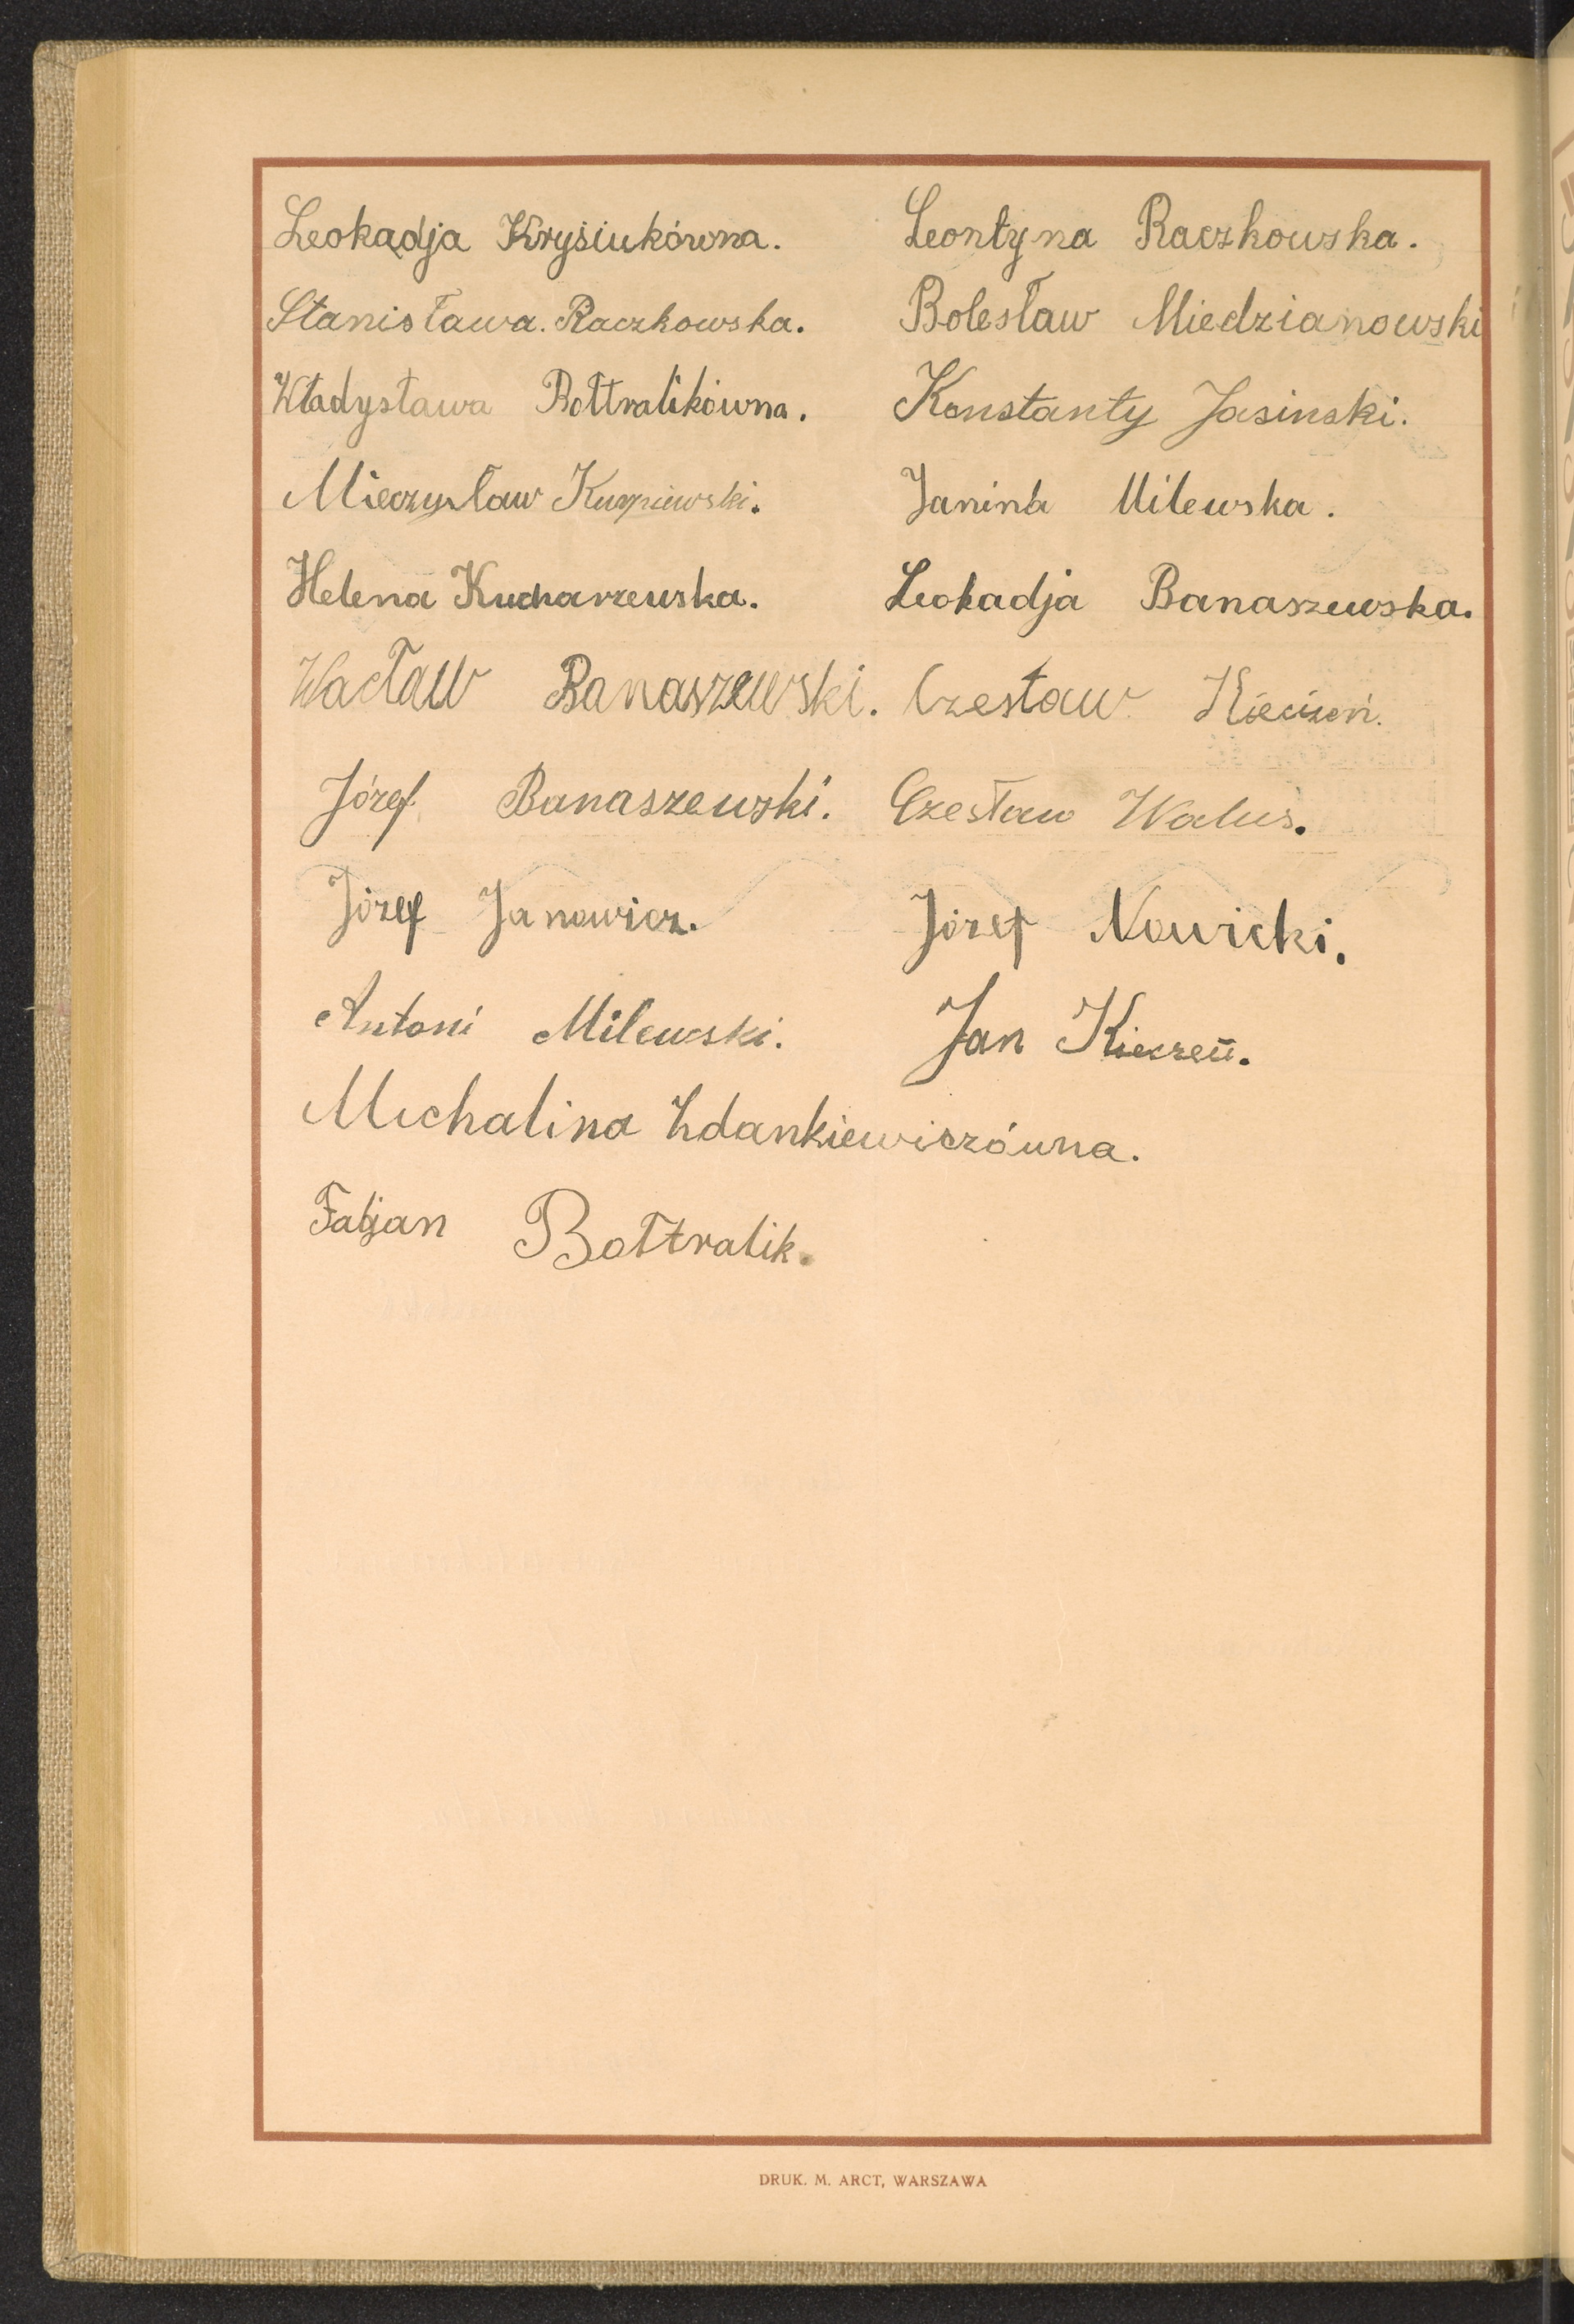 Leokadja Kryśiukówna. Leontyna Raczkowska.
Stanisława. Raczkowska. Bolesław Miedzianowski
Władysława Bołtralikówna. Konstanty Jasinski.
Mieczysław Kurpiewski. Janina Milewska.
Helena Kucharzewska. Leokadja Banaszewska.
Wacław Banaszewski. Czesław Kieczeń.
Józef Banaszewski. Czesław Walus.
Józef Janowicz. Józef Nowicki.
Antoni Milewski. Jan Kieczeń.
Michalina Zdankiewiczówna.
Fabjan Bołtralik.
DRUK. M. ARCT, WARSZAWA